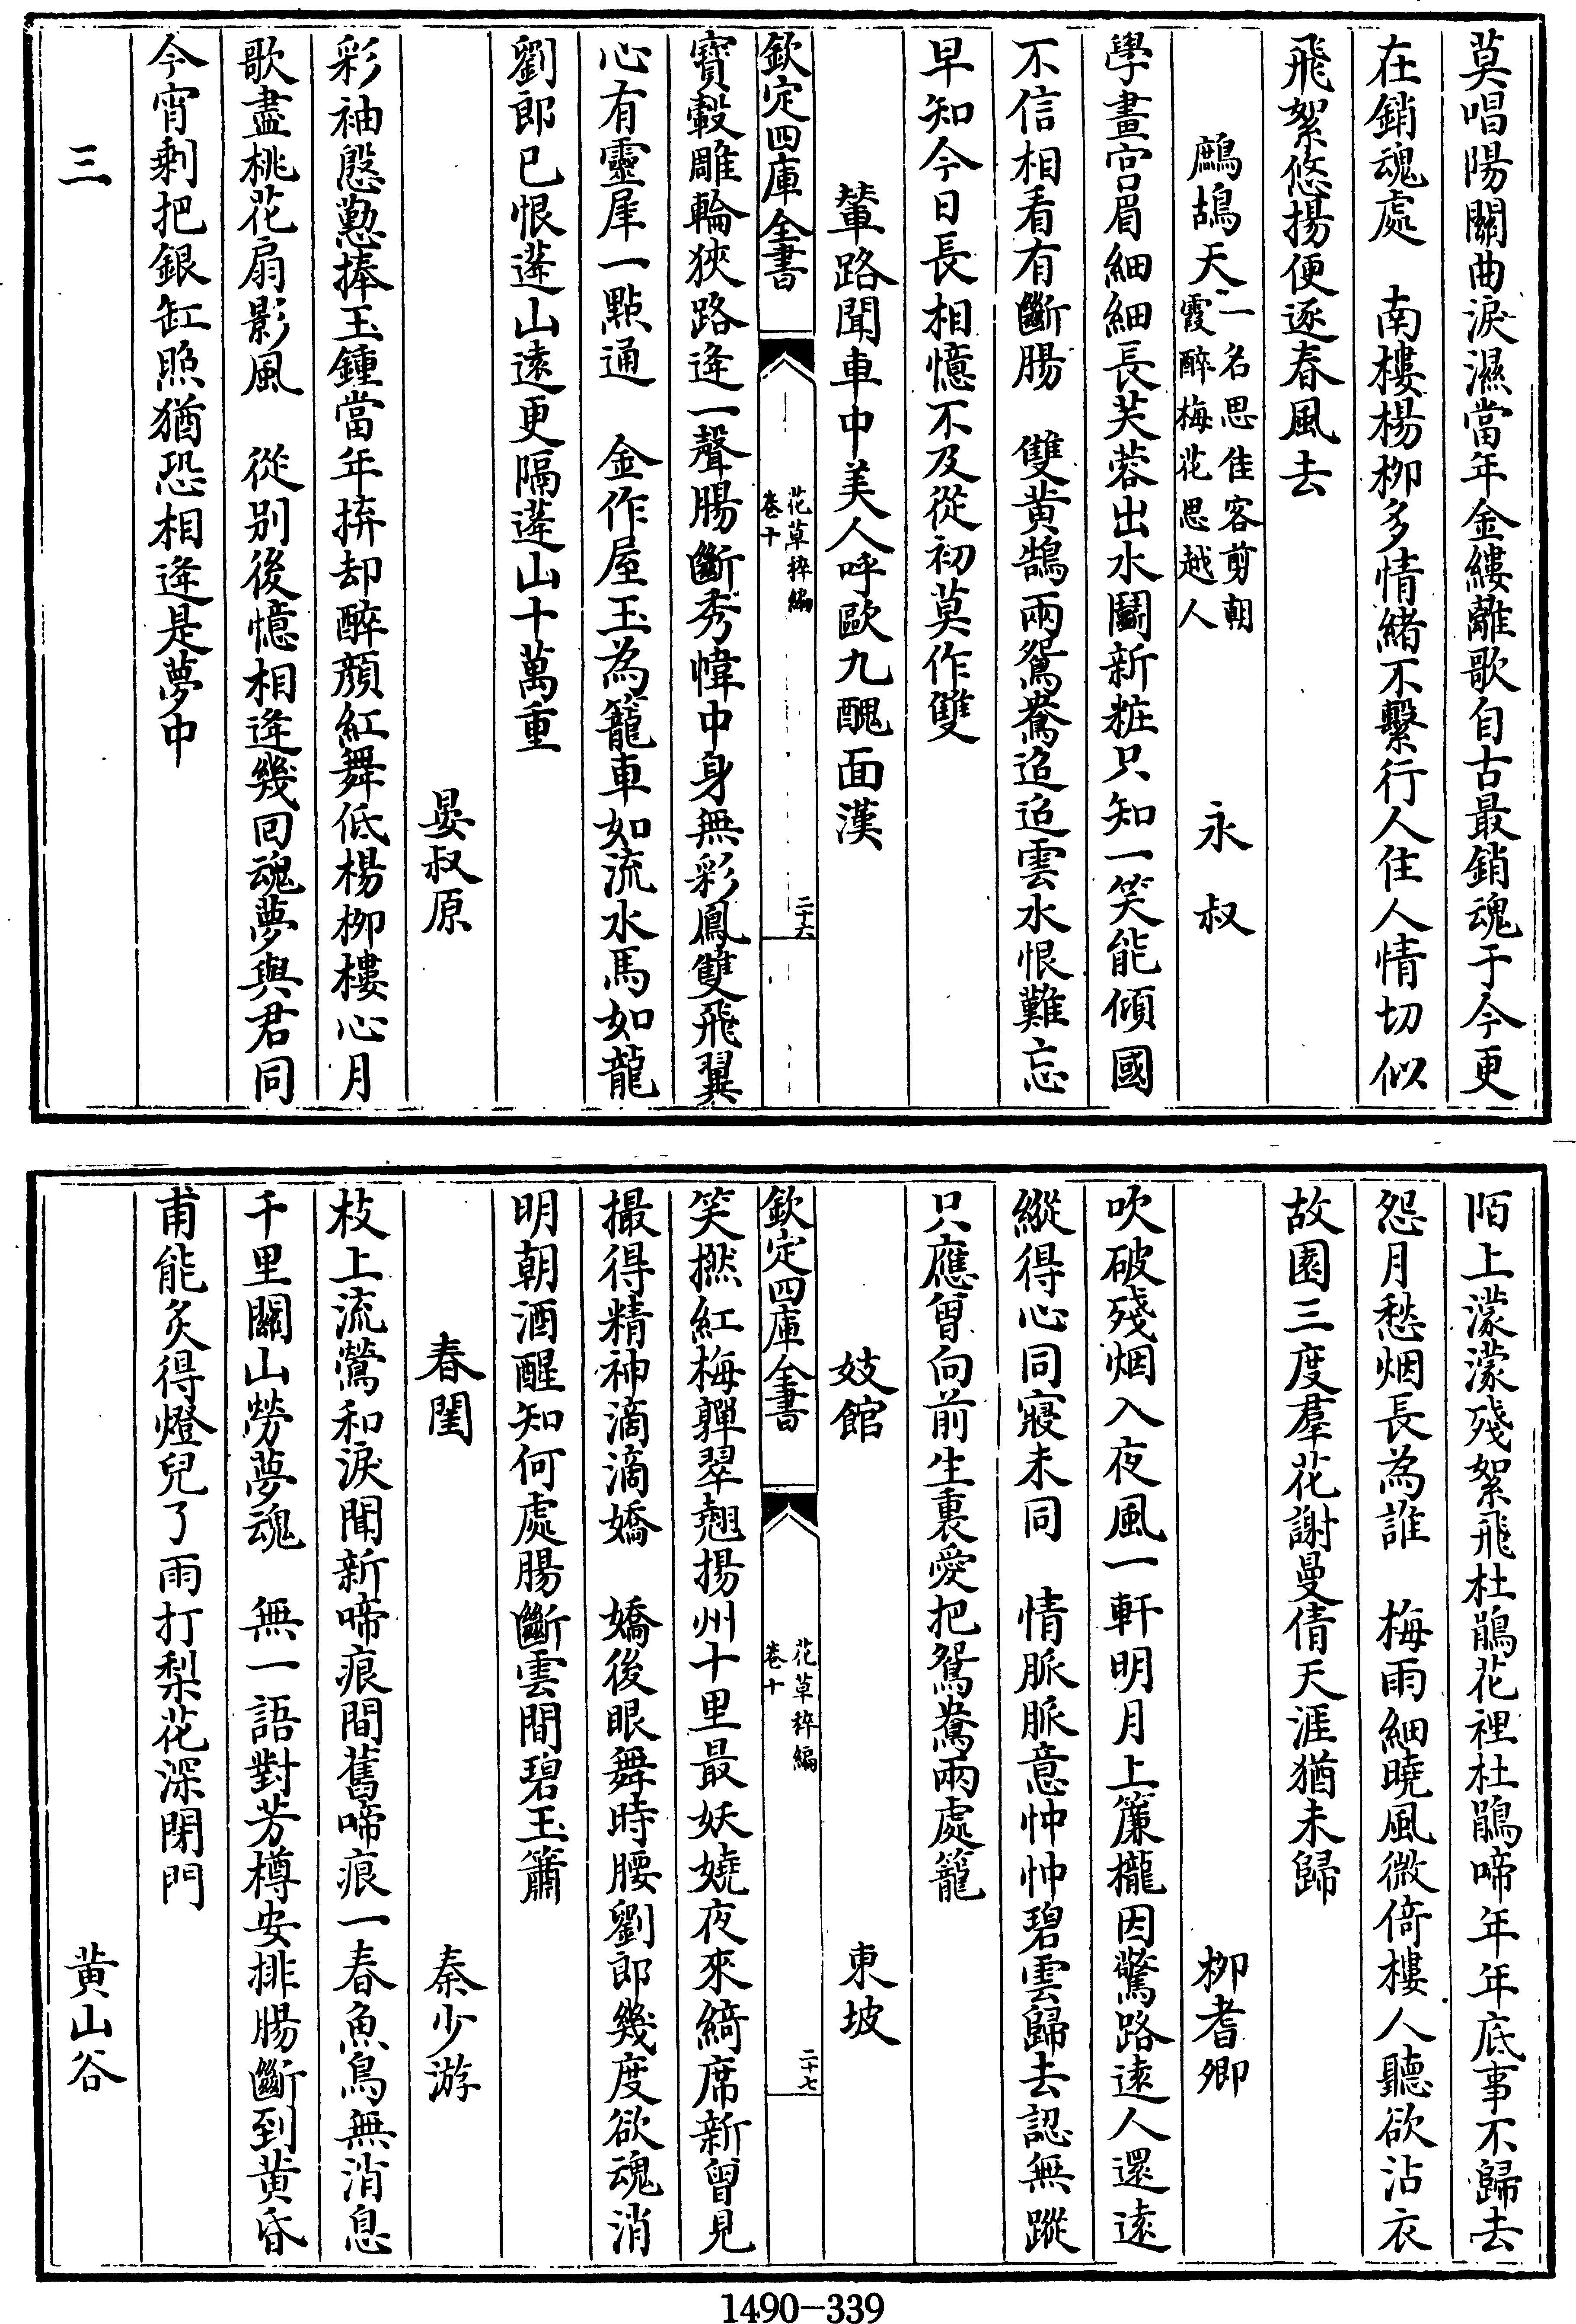 莫唱陽關曲淚濕當年金縷離歌自古最銷魂于今更
在銷魂處　南樓楊柳多情緒不繫行人住人情切似
飛絮悠揚便逐春風去
鷓鴣天一名思佳客剪朝
霞醉梅花思越人　永叔
學畫宫眉細細長芙蓉出水鬭新粧只知一笑能傾國
不信相看有斷腸　雙黄鵠兩鴛鴦迢迢雲水恨難忘
早知今日長相憶不及從初莫作雙
輦路聞車中美人呼歐九醜面漢
欽定四庫全書
花草稡編
卷十
二十六
寶轂雕輪狹路逢一聲腸斷秀幃中身無彩鳳雙飛翼
心有靈犀一點通　金作屋玉為籠車如流水馬如龍
劉郎已恨蓬山遠更隔蓬山十萬重
晏叔原
彩袖慇懃捧玉鍾當年拚却醉顔紅舞低楊柳樓心月
歌盡桃花扇影風　從别後憶相逢幾回魂夢與君同
今宵剩把銀缸照猶恐相逢是夢中
三
陌上濛濛殘絮飛杜鵑花裡杜鵑啼年年底事不歸去
怨月愁烟長為誰　梅雨細曉風微倚樓人聽欲沾衣
故園三度羣花謝曼倩天涯猶未歸
柳耆卿
吹破殘烟入夜風一軒明月上簾櫳因驚路逺人還逺
縱得心同寢未同　情脈脈意忡忡碧雲歸去認無蹤
只應曾向前生裏愛把鴛鴦兩處籠
妓館　東坡
欽定四庫全書
花草稡編
卷十
二十七
笑撚紅梅嚲翠翹揚州十里最妖嬈夜來綺席新曾見
撮得精神滴滴嬌　嬌後眼舞時腰劉郎幾度欲魂消
明朝酒醒知何處腸斷雲間碧玉簫
春閨　秦少游
枝上流鶯和淚聞新啼痕間舊啼痕一春魚鳥無消息
千里關山勞夢魂　無一語對芳樽安排腸斷到黄昏
甫能炙得燈兒了雨打梨花深閉門
黄山谷
1490-339